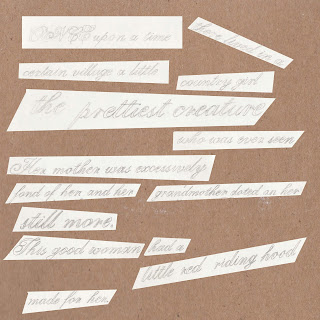 ONCE upon a time
there lived in a
certain village a little
country girl
the prettiest creature
who was ever seen
Her mother was excessively
fond of her and her
grandmother doted on her
still more.
This good woman
had a
little red riding hood
made for her.